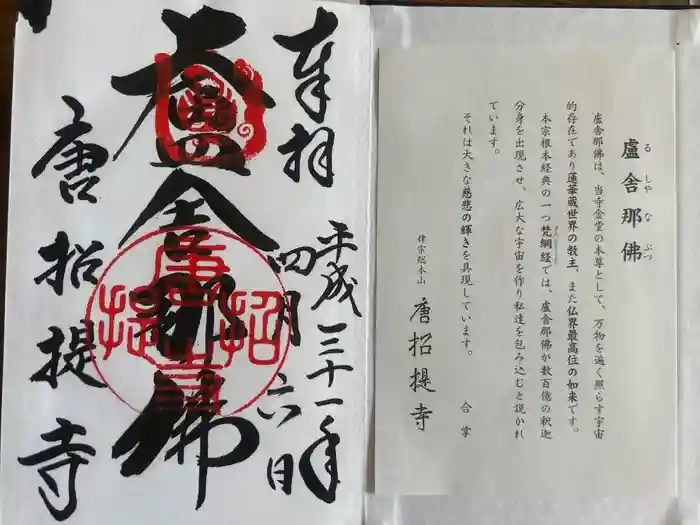 盧舎那佛
るしゃなぶつ
盧舎那佛は、当寺金堂の本尊として、万物を遍く照らす宇宙
的存在であり蓮華蔵世界の教主、また仏界最高位の如来です。
本宗根本経典の一つ梵網経では、盧舎那佛が数百億の釈迦
分身を出現させ、広大な宇宙を作り私達を包み込むと説かれ
ています。
それは大きな慈悲の輝きを具現しています。
合掌
律宗総本山 唐招提寺
奉拝
平成三十一年
四月六日
盧舎那佛
唐招提寺
唐招提寺